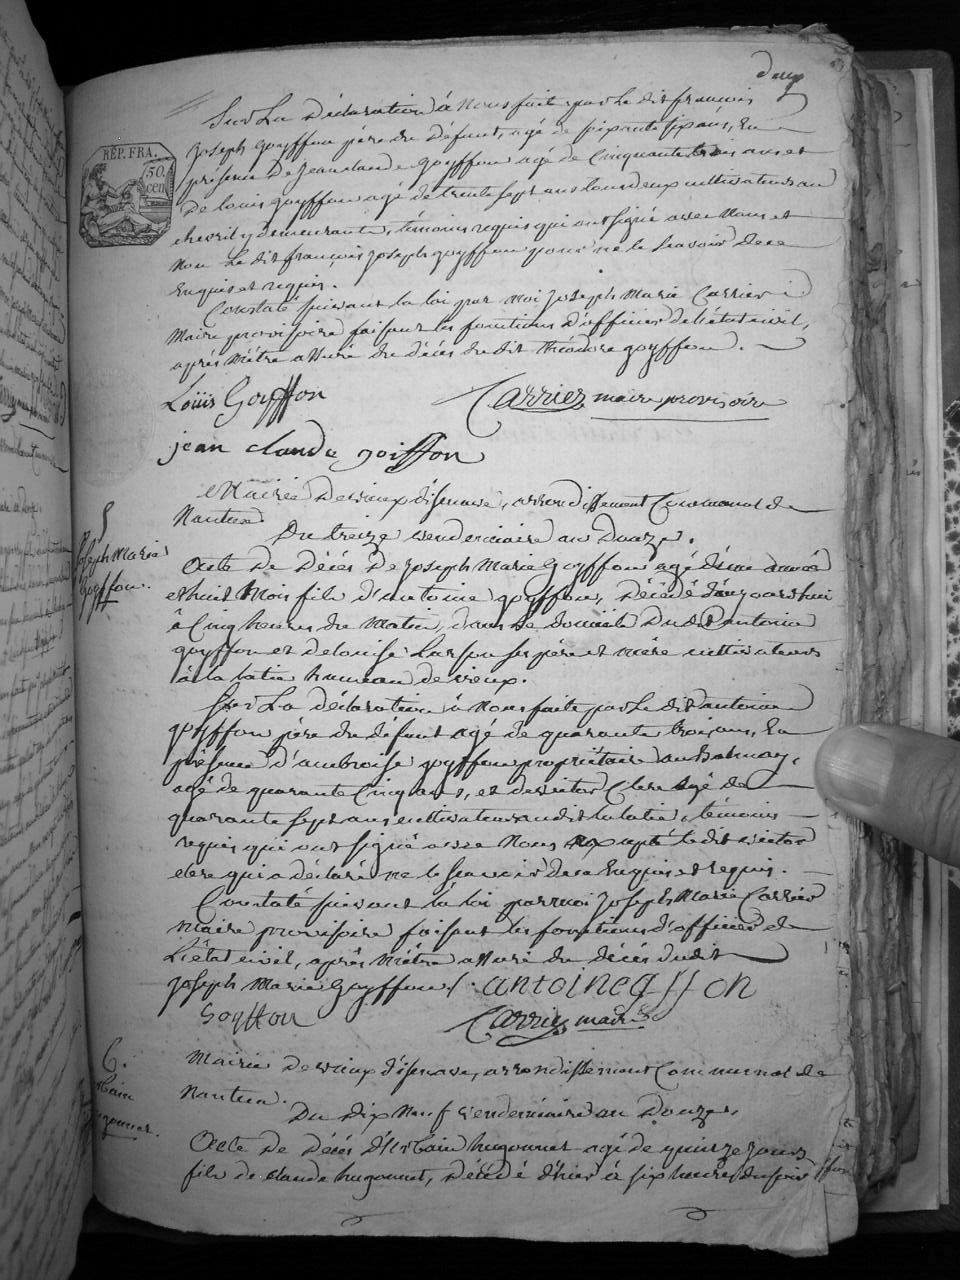 deux
Sur La Déclaration à Nous faite par Le dit françois
Joseph goyffon père du Défunt, agé de soixante six ans, En
présence De Jean claude goyffon agé de Cinquante trois ans et
De louis goyffon agé de trente sept ans tous deux cultivateurs au
chevril y demeurants, témoins requis qui ont signé avec Nous et
Non Le dit françois Joseph goyffon pour ne le Savoir De ce
Enquis et requis.
Constaté suivant la loi par moi Joseph Marie Carrier
Maire provisoire faisant les fonctions D'officier de l'état civil,
après M'être assuré du décès du dit théodore goyffon.
RÉP. FRA.
50.
cen
Loüis Goyffon
Carrier maire provisoire
jean claude goiffon
Mairie De vieux d'isenave, arrondissement Communal de
Nantua
Du treize vendemiaire an Douze.
5
Joseph Marie
Goyffon.
Acte De Décès De Joseph Marie Goyffon agé d'une année
et huit Mois fils d'antoine goyffon, Décédé d'aujourd'hui
à Cinq heures du Matin, dans Le domicile Dudit antoine
goyffon et de louise ses père et mère cultivateurs
à la hameau de vieux.
Sur La déclaration à Nous faite par Le dit antoine
goyffon père du défunt agé de quarante trois ans, En
présence d'ambroise goyffon propriétaire au Balmay,
agé de quarante Cinq ans, et de victor Clerc agé de
quarante sept ans cultivateur audit témoins
requis qui ont signé avec Nous excepté le dit victor
clerc qui a déclaré ne le Savoir De ce Enquis et requis.
Constaté suivant la loi par moi Joseph Marie Carrier
Maire provisoire faisant les fonctions d'officier de
L'état civil, après M'être assuré du décès dudit
joseph Marie Goyffon. antoine gffon
Goyffon
Carrier maire
6.
Mairie De vieux d'isenave, arrondissement Communal de
Nantua.
Du Dix Neuf vendemiaire an Douze.
urbain
hugonnet.
Acte de Décès d'Urbain hugonnet agé de quinze jours
fils de claude hugonnet, Décédé d'hier à six heures du soir